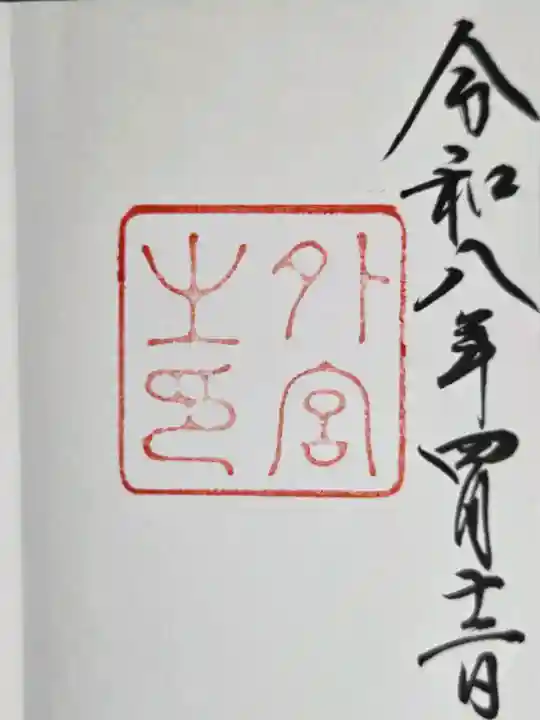 令和八年四月十二日
外宮
之印